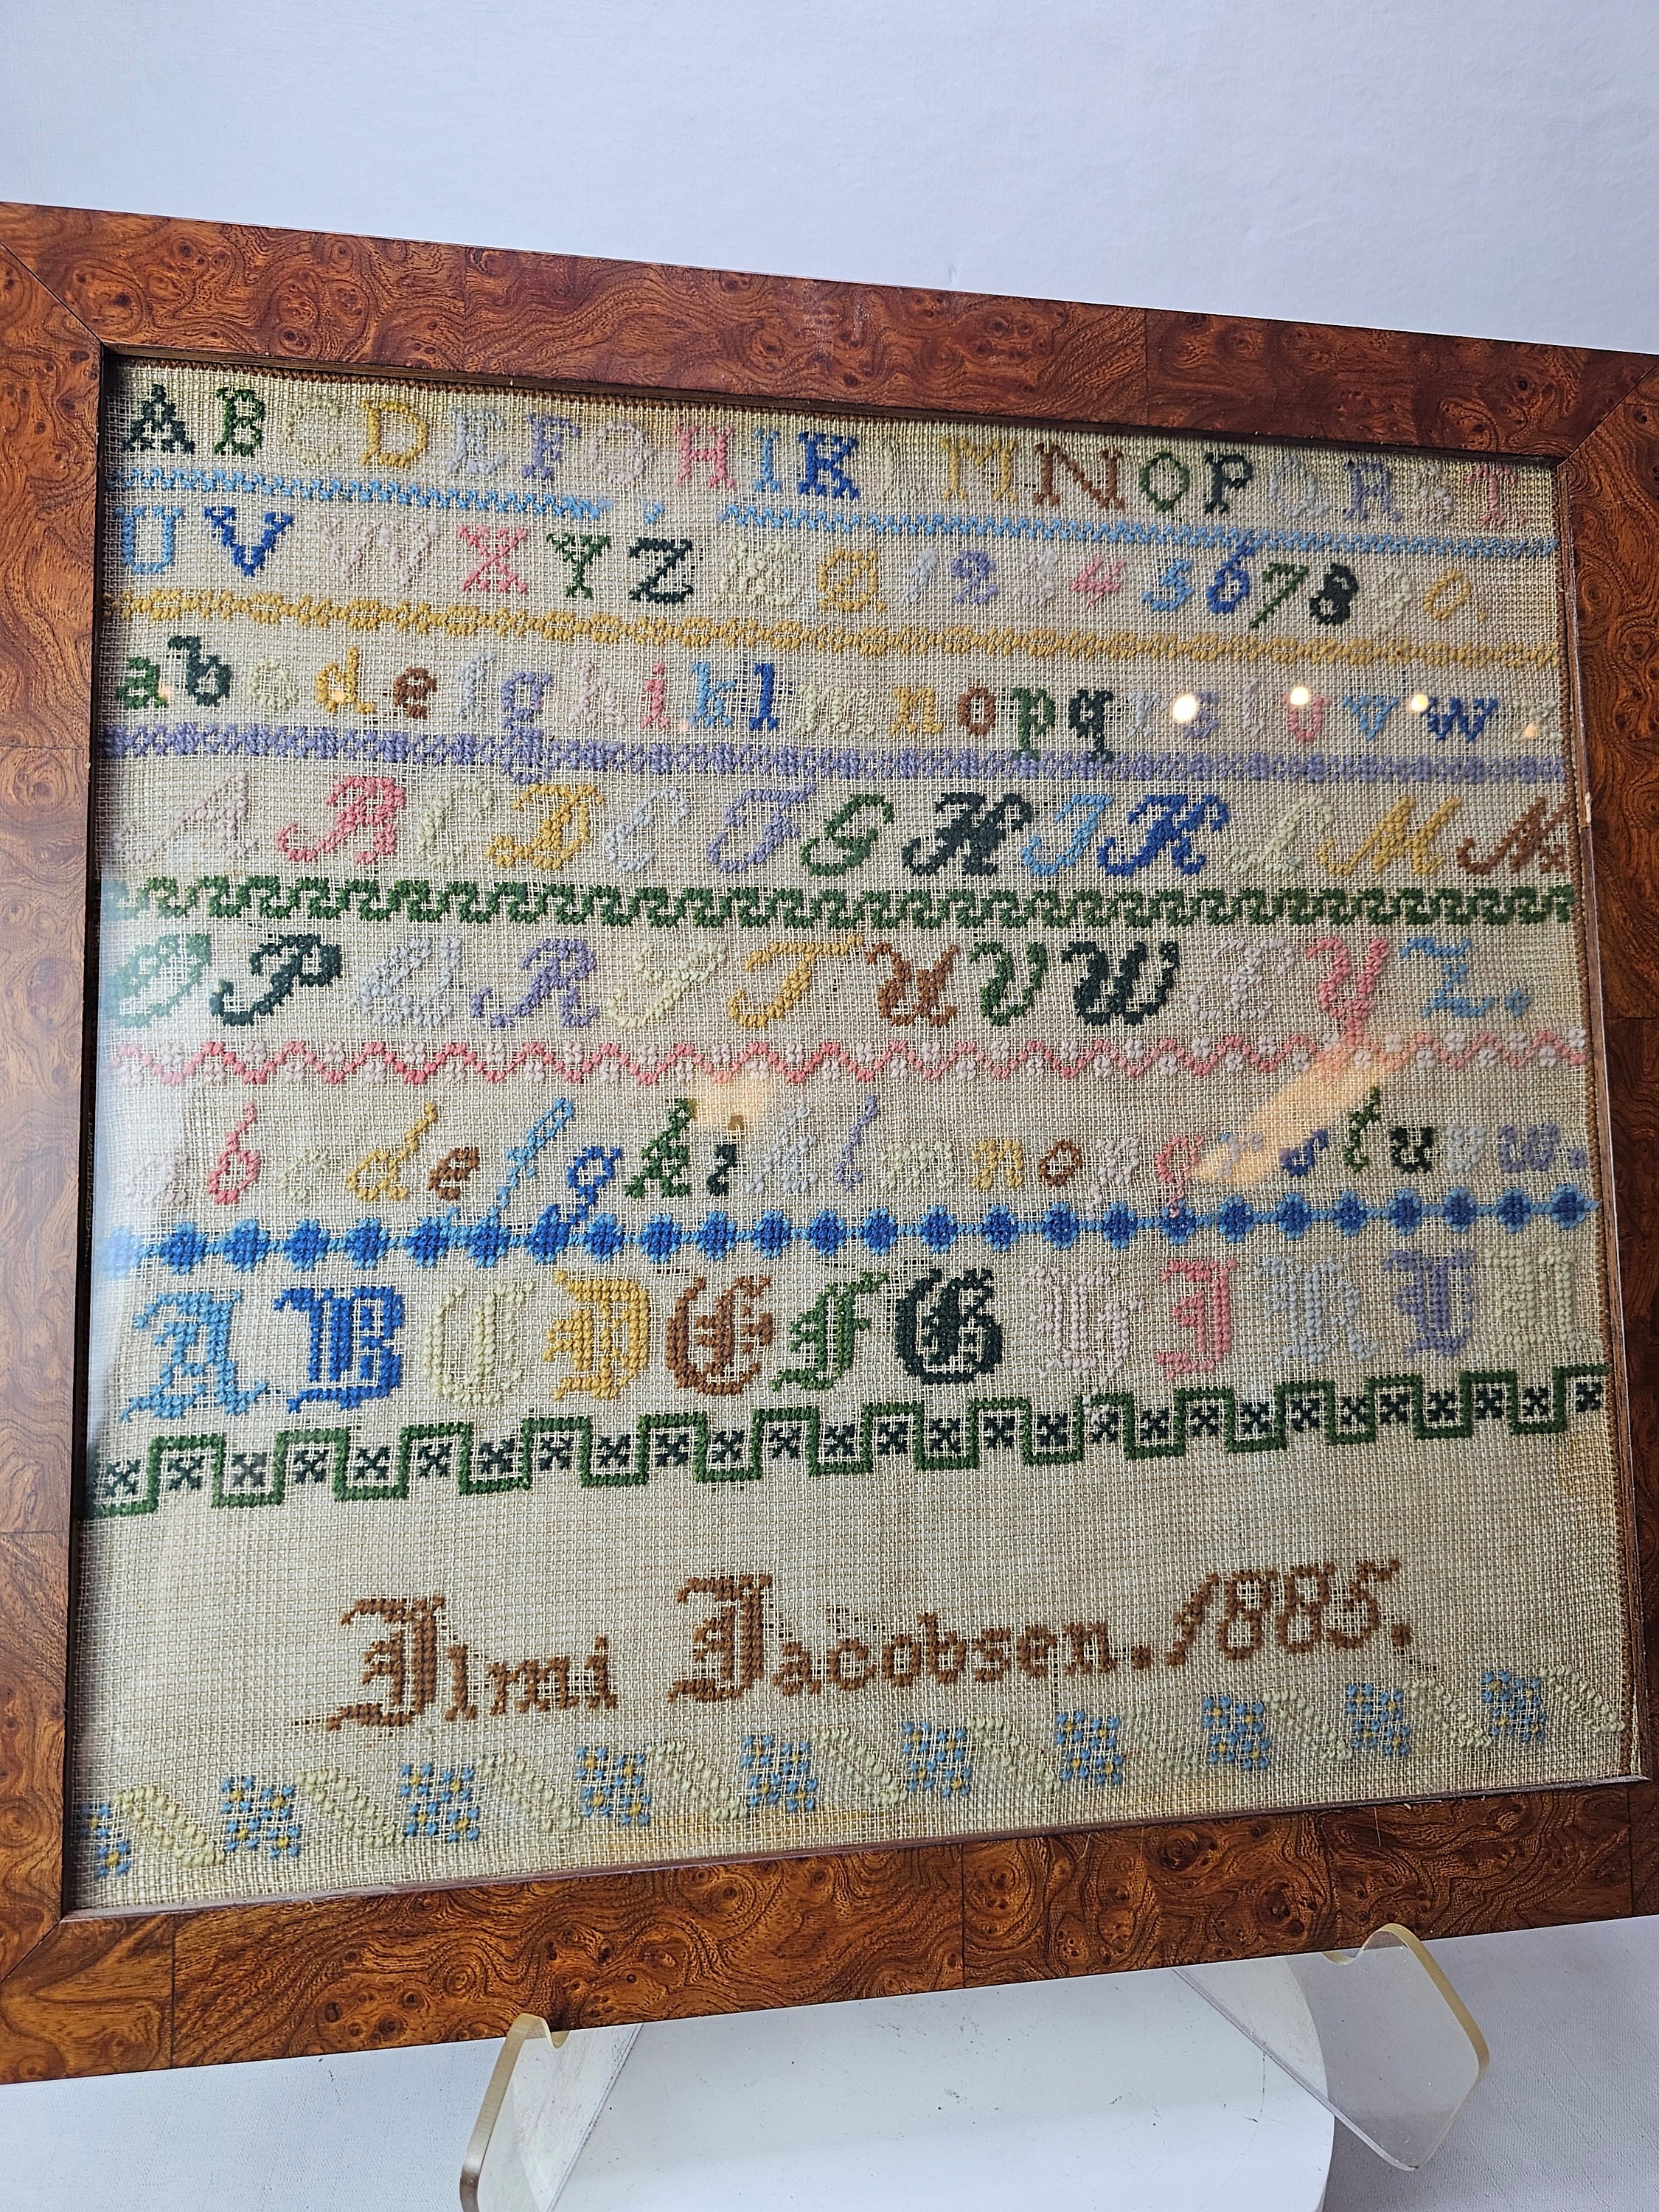 A B C D E F G H I K L M N O P Q R S T
U V W X Y Z Æ Ø. 1 2 3 4 5 6 7 8 9 0.
a b c d e f g h i k l m n o p q r s t u v w x
A B C D E F G H I K L M N
O P Q R S T U V W X Y Z.
a b c d e f g h i k l m n o p q r s t u v w.
A B C D E F G H I K L M
Ilmi Jacobsen. 1885.